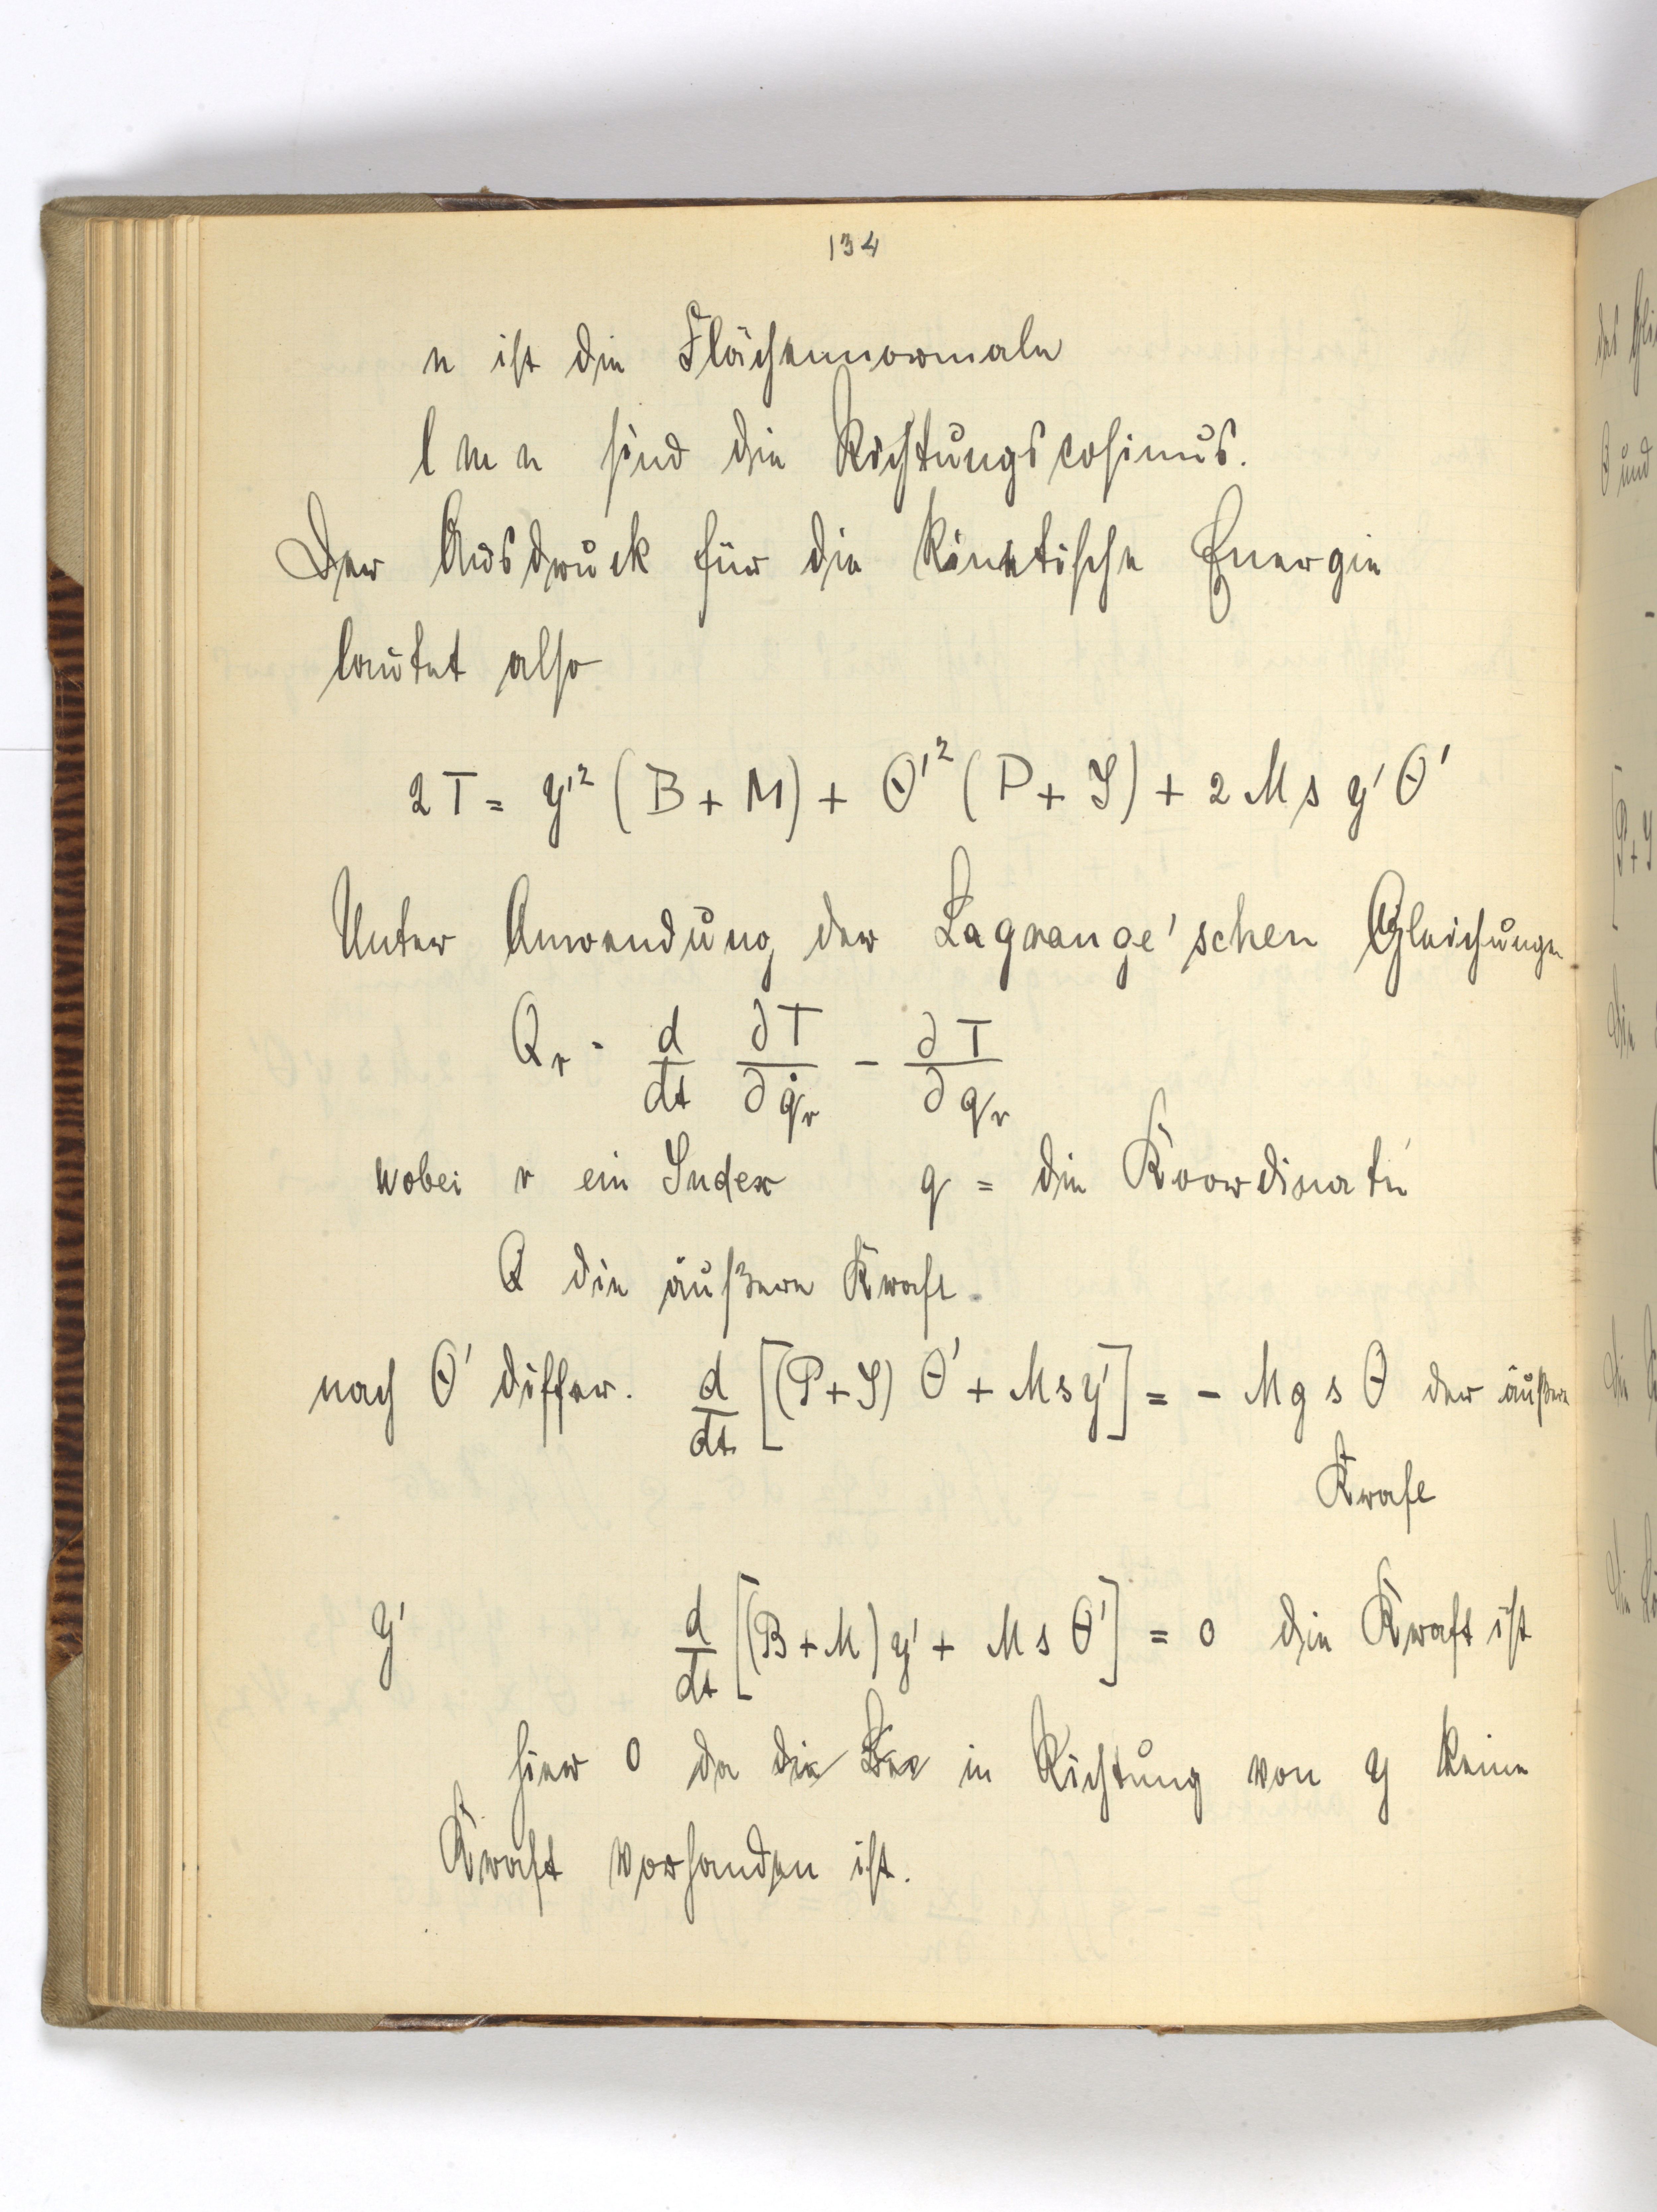 134
n ist die Flächennormale
l m n sind die Richtungscosinus.
Der Ausdruck für die kinetische Energie
lautet also
2T = y'² (B + M) + Θ'² (P + J) + 2 M s y' Θ'
Unter Anwendung der Lagrange'schen Gleichungen
Q_r = d/dt ∂T/∂q̇_r − ∂T/∂q_r
wobei r ein Index q = die Koordinate
Q die äußere Kraft.
nach Θ' differ. d/dt [(P+J) Θ' + M s y'] = − M g s Θ der äußere
Kraft
y' d/dt [(B+M) y' + M s Θ'] = 0 die Kraft ist
hier 0 da die in Richtung von y keine
Kraft vorhanden ist.